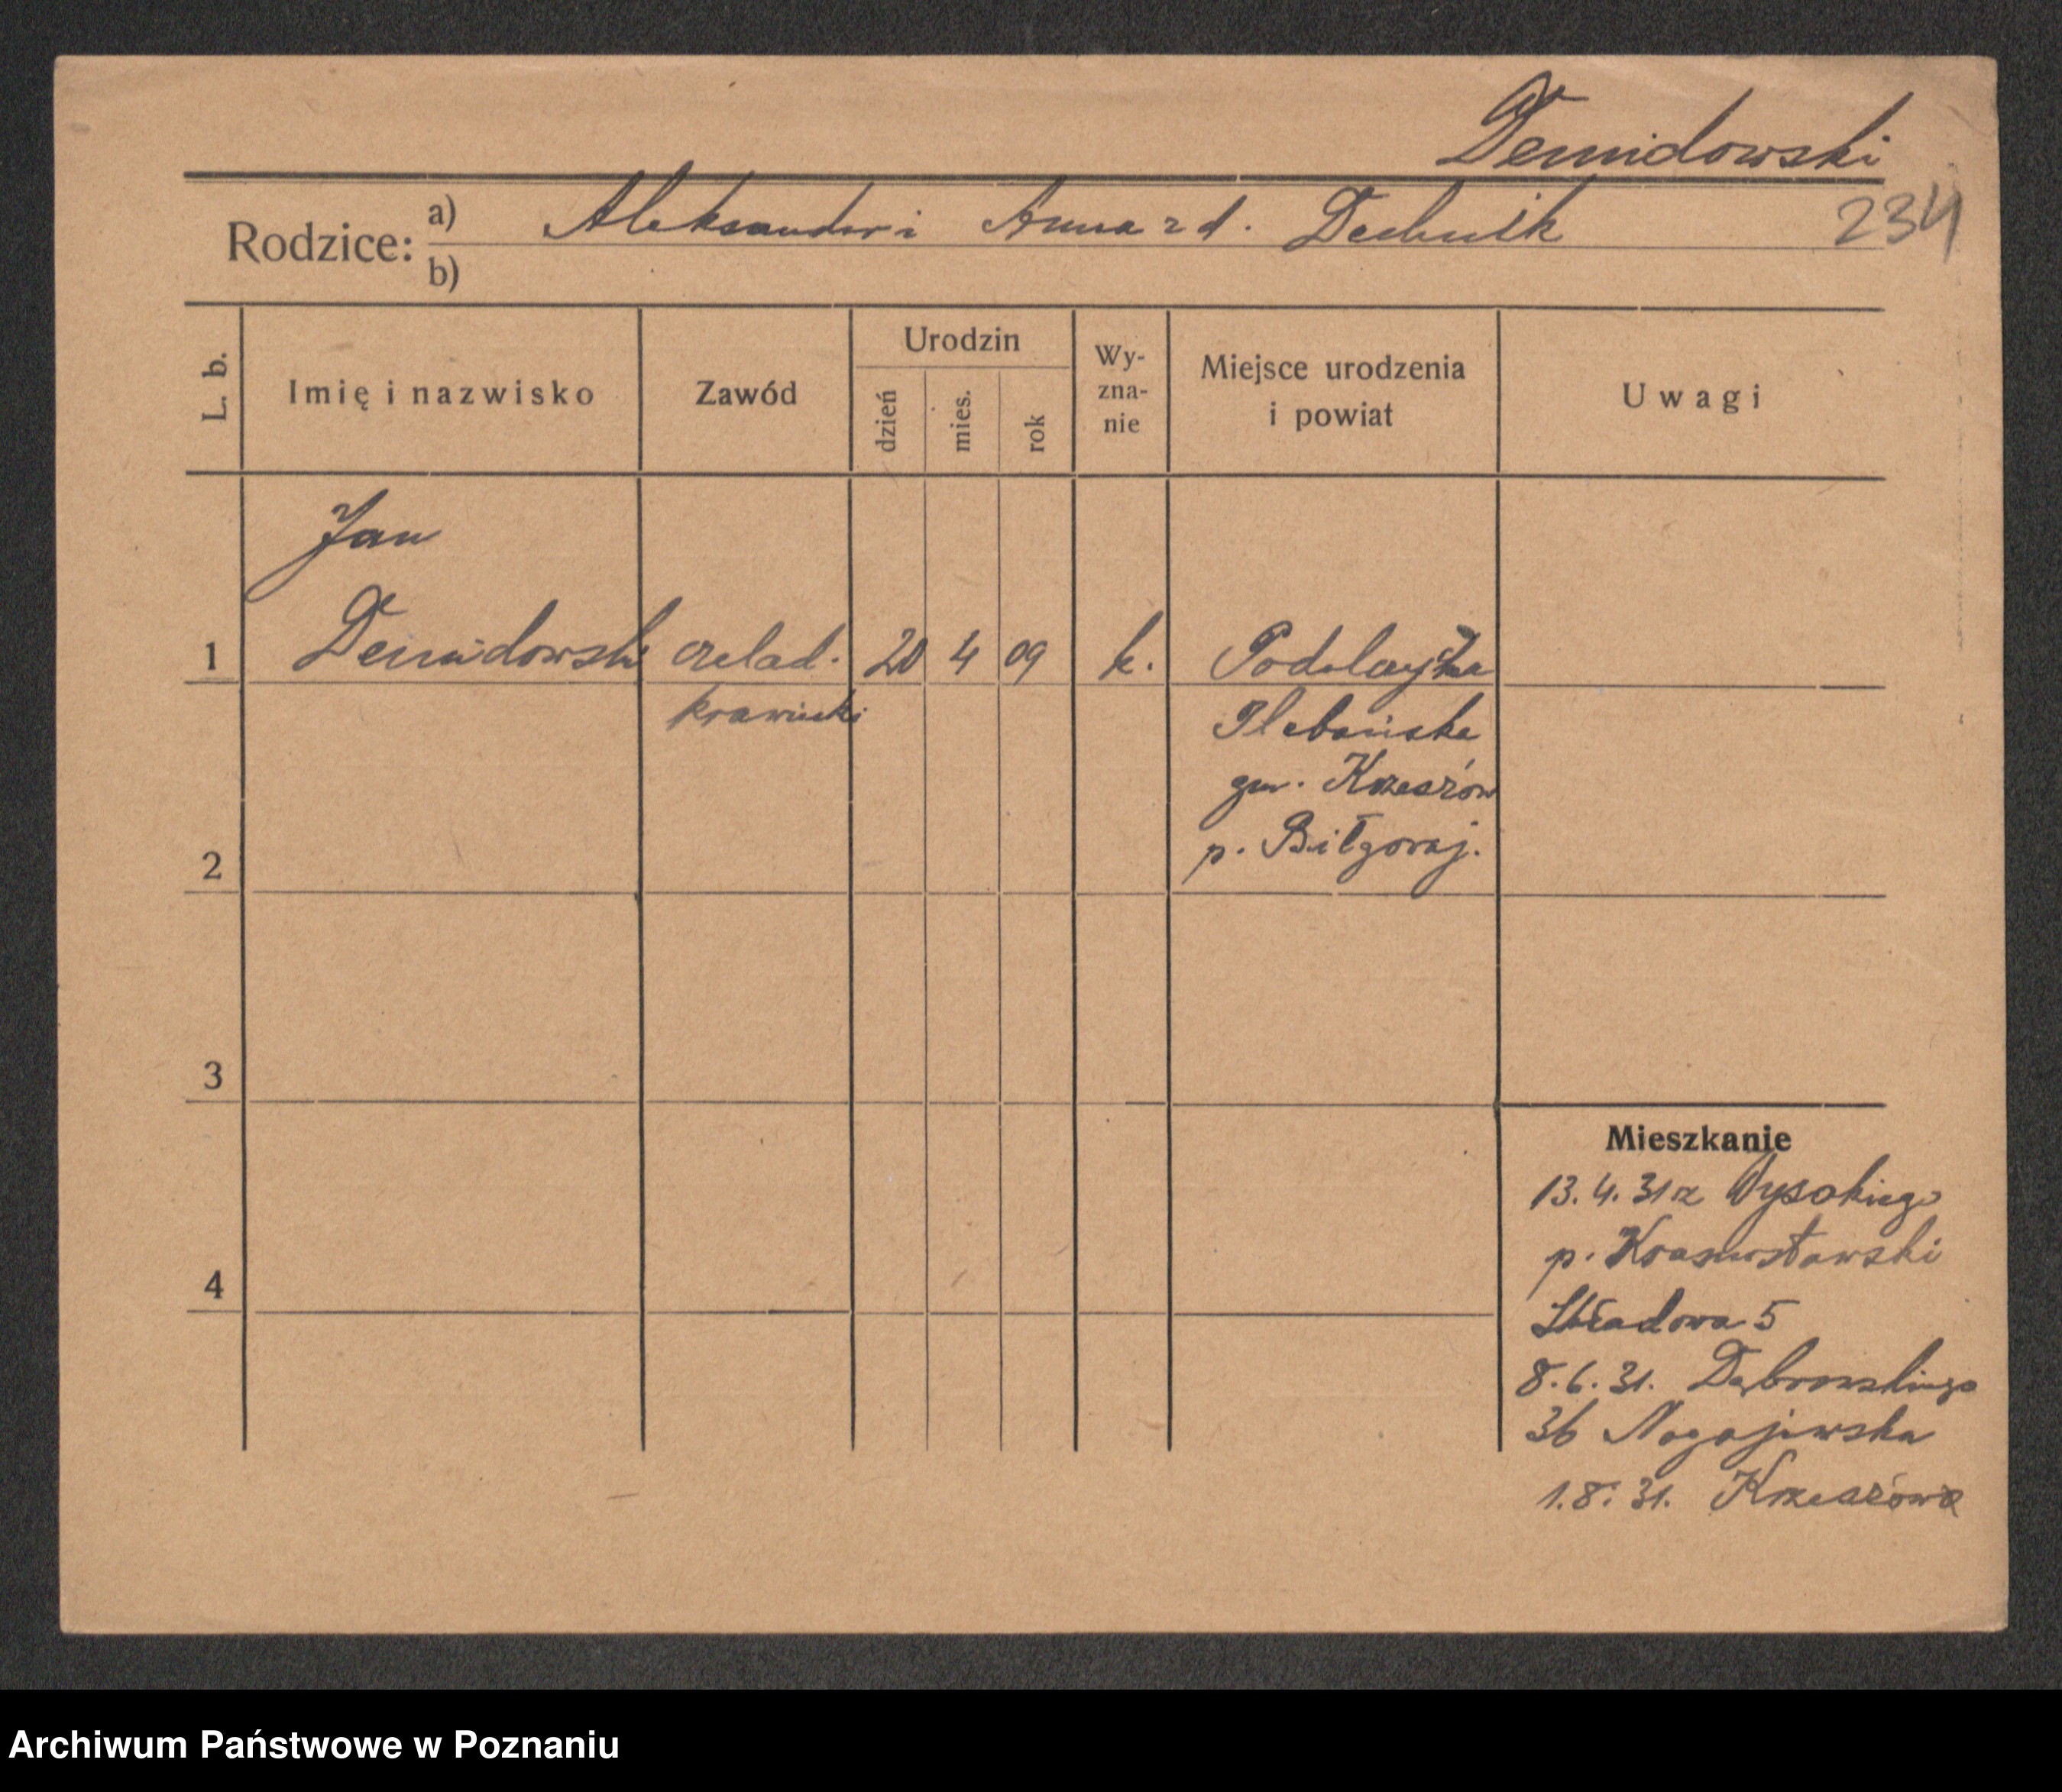 Demidowski
Rodzice: a) Aleksander i Anna z d. Dechnik 234
b)
L. b. Imię i nazwisko Zawód Urodzin dzień mies. rok Wy-zna-nie Miejsce urodzenia i powiat Uwagi
Jan
1 Demidowski czelad. 20 4 09 k.
krawiecki Plebańska
gm. Krzeszów
2 p. Biłgoraj.
3
Mieszkanie
13.4.31 z Wysokiego
p. Krasnostawski
4
Składowa 5
8.6.31. Dąbrowskiego
36 Nogajewska
1.8.31. Krzeszowa
Archiwum Państwowe w Poznaniu